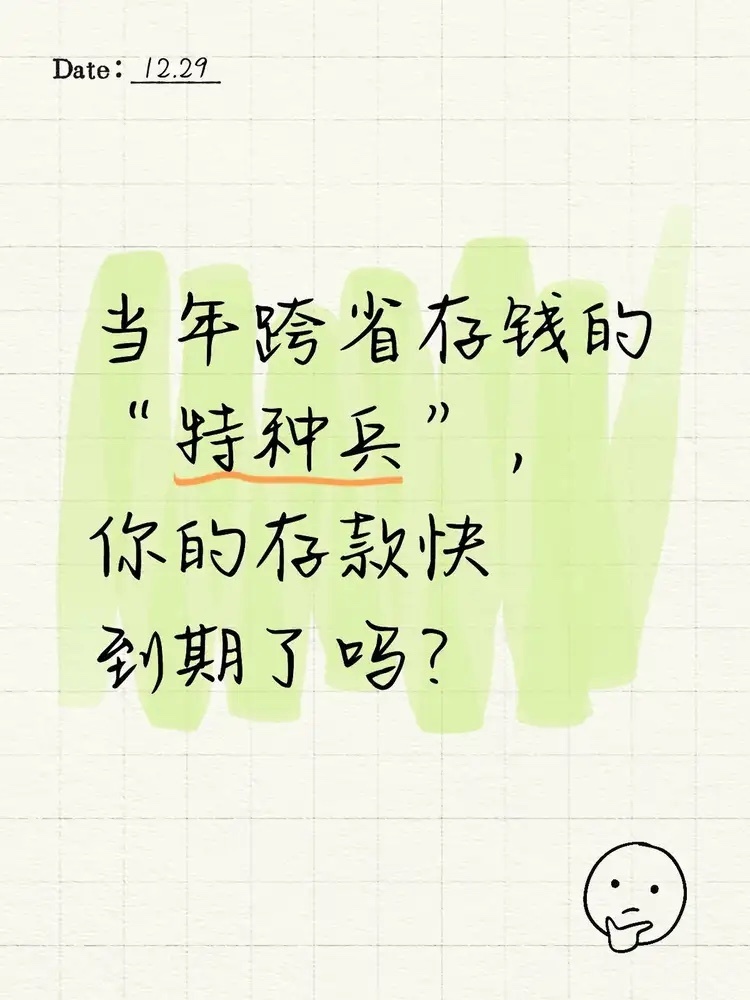 Date: 12.29
当年跨省存钱的
“特种兵”，
你的存款快
到期了吗？